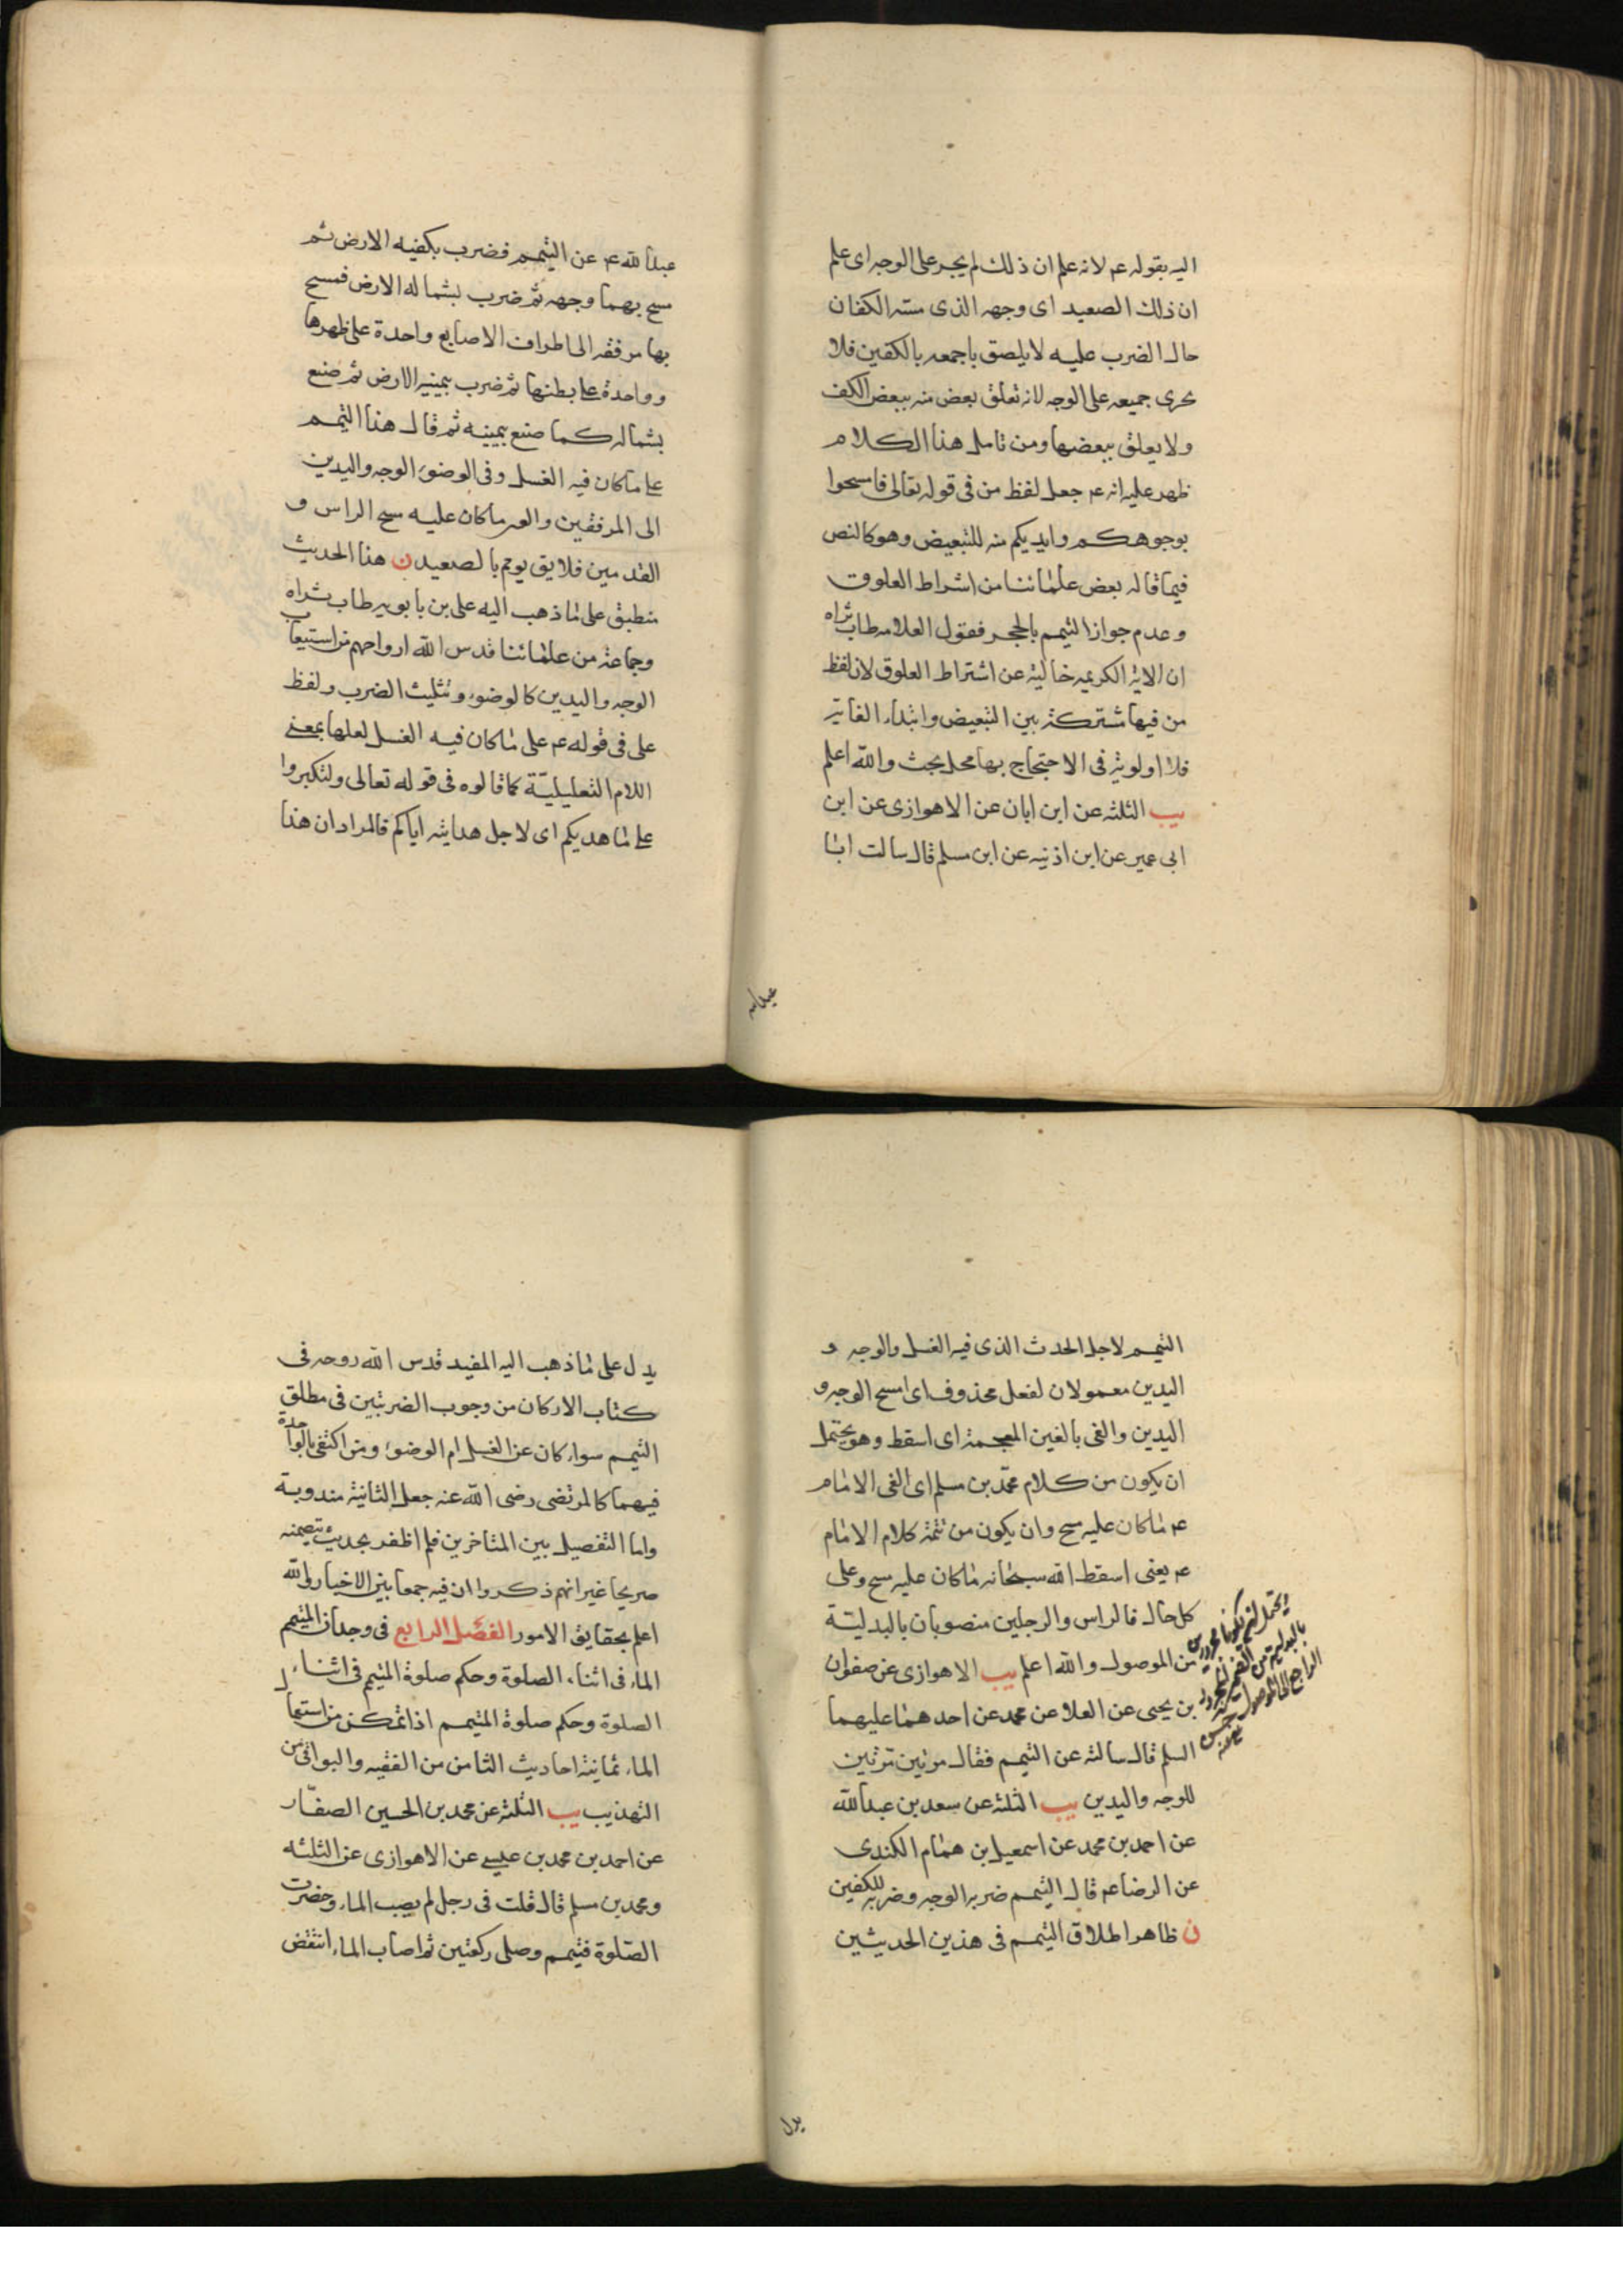 اليه بقوله ع لانه علم ان ذلك لم يجر على الوجه اى علم
ان ذلك الصعيد اى وجهه الذى مسته الكفان
حال الضرب عليه لا يلصق باجمعه بالكفين فلا
يجرى جميعه على الوجه لانه تعلق بعض منه ببعض الكف
ولا يعلق ببعضها ومن تامل هذا الكلام
ظهر عليه انه ع جعل لفظ من فى قوله تعالى فامسحوا
بوجوهكم وايديكم منه للتبعيض وهو كالنص
فيما قاله بعض علمائنا من اشراط العلوق
وعدم جواز التيمم بالحجر فقول العلامه طاب ثراه
ان الاية الكريمه خالية عن اشتراط العلوق لان لفظ
من فيها مشتركة بين التبعيض وابتداء الغاية
فلا اولوية فى الاحتجاج بها محل بحث والله اعلم
يب الثلثه عن ابن ابان عن الاهوازى عن ابن
ابى عمير عن ابن اذنيه عن ابن مسلم قال سالت ابا
عبدالله
عبدالله ع عن التيمم فضرب بكفيه الارض ثم
مسح بهما وجهه ثم ضرب بشماله الارض فمسح
بها مرفقه الى اطراف الاصابع واحدة على ظهرها
وواحدة على بطنها ثم ضرب بيمينه الارض ثم صنع
بشماله كما صنع بيمينه ثم قال هذا التيمم
على ما كان فيه الغسل وفى الوضوء الوجه واليدين
الى المرفقين والقى ما كان عليه مسح الراس و
القدمين فلا يق يومم بالصعيد ن هذا الحديث
منطبق على ما ذهب اليه على بن بابويه طاب ثراه
وجماعة من علمائنا قدس الله ارواحهم من استيعاب
الوجه واليدين كالوضوء وتثليث الضرب ولفظ
على فى قوله ع على ما كان فيه الغسل لعلها بمعنى
اللام التعليلية كما قالوه فى قوله تعالى ولتكبروا
على ما هديكم اى لاجل هدايته اياكم فالمراد ان هذا
التيمم لاجل الحدث الذى فيه الغسل والوجه و
اليدين معمولان لفعل محذوف اى امسح الوجه و
اليدين والقى بالغين المعجمة اى اسقط وهو يحتمل
ان يكون من كلام محمد بن مسلم اى الغى الامام
ع ما كان عليه مسح وان يكون من تتمة كلام الامام
ع يعنى اسقط الله سبحانه ما كان عليه مسح وعلى
كل حال فالراس والرجلين منصوبان بالبدلية
من الموصول والله اعلم يب الاهوازى عن صفوان
بن يحيى عن العلا عن محمد عن احدهما عليهما
السلم قال سالته عن التيمم فقال مرتين مرتين
للوجه واليدين يب الثلثه عن سعد بن عبدالله
عن احمد بن محمد عن اسمعيل بن همام الكندى
عن الرضا ع قال التيمم ضربه الوجه وضربه للكفين
ن ظاهر اطلاق التيمم فى هذين الحديثين
ويحتمل ان يكونا مجرورين
بالبدلية من الضمير المجرور
الراجع الى الموصول
يدل
يدل على ما ذهب اليه المفيد قدس الله روحه فى
كتاب الاركان من وجوب الضربتين فى مطلق
التيمم سواء كان عن الغسل ام الوضوء ومن اكتفى بالواحدة
فيهما كالمرتضى رضى الله عنه جعل الثانية مندوبة
واما التفصيل بين المتاخرين فلم اظفر بحديث يتضمنه
صريحا غير انهم ذكروا ان فيه جمعا بين الاخبار والله
اعلم بحقايق الامور الفصل الرابع فى وجدان المتيمم
الماء فى اثناء الصلوة وحكم صلوة المتيمم فى اثناء
الصلوة وحكم صلوة المتيمم اذا تمكن من استعمال
الماء ثمانية احاديث الثامن من الفقيه والبواقى من
التهذيب يب الثلثه عن محمد بن الحسين الصفار
عن احمد بن محمد بن عيسى عن الاهوازى عن الثلثه
ومحمد بن مسلم قال قلت فى رجل لم يصب الماء وحضرت
الصلوة فتيمم وصلى ركعتين ثم اصاب الماء انتقض